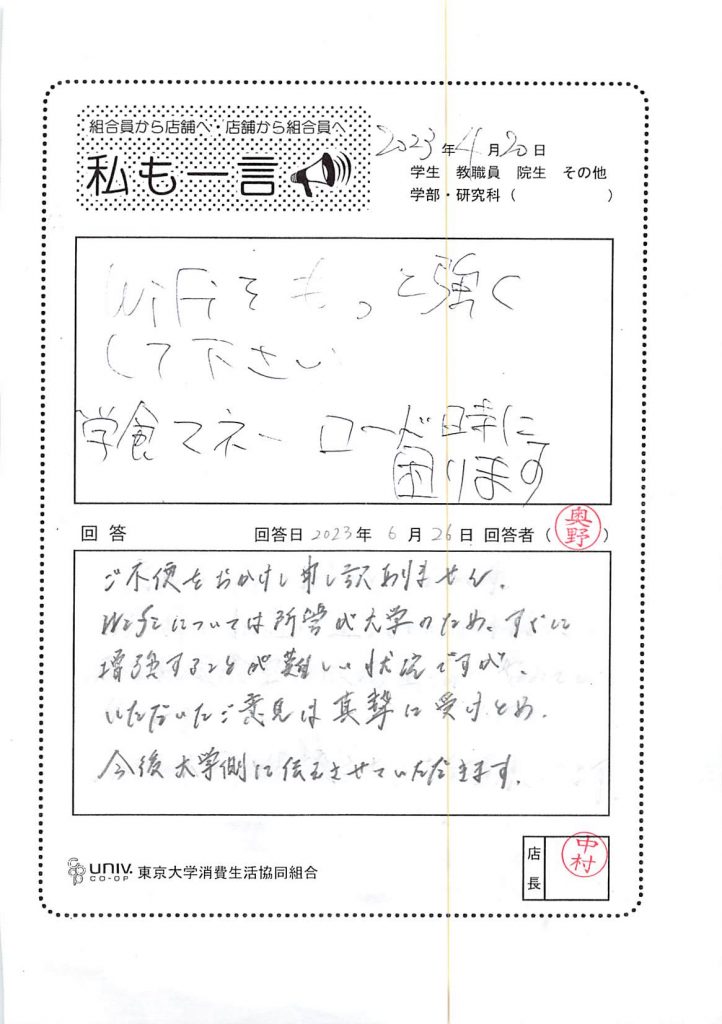 組合員から店舗へ・店舗から組合員へ
私も一言
2023年4月20日
学生 教職員 院生 その他
学部・研究科（ ）
WiFiをもっと強く
して下さい
学食マネーロード時に
困ります
回答 回答日2023年6月26日 回答者（奥野）
ご不便をおかけし申し訳ありません。
Wifiについては所管が大学のため、すぐに
増強することが難しい状況ですが、
いただいたご意見は真摯に受けとめ、
今後大学側に伝えさせていただきます。
UNIV. CO-OP 東京大学消費生活協同組合
店長 中村